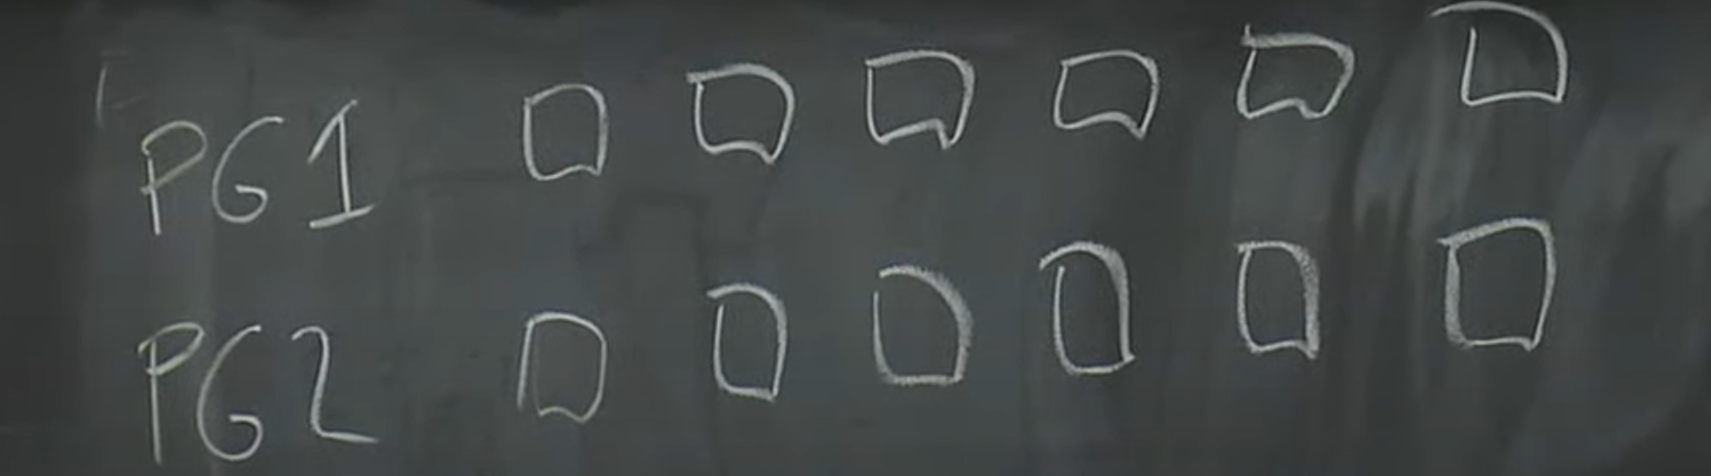 PG1 □ □ □ □ □ □
PG2 □ □ □ □ □ □